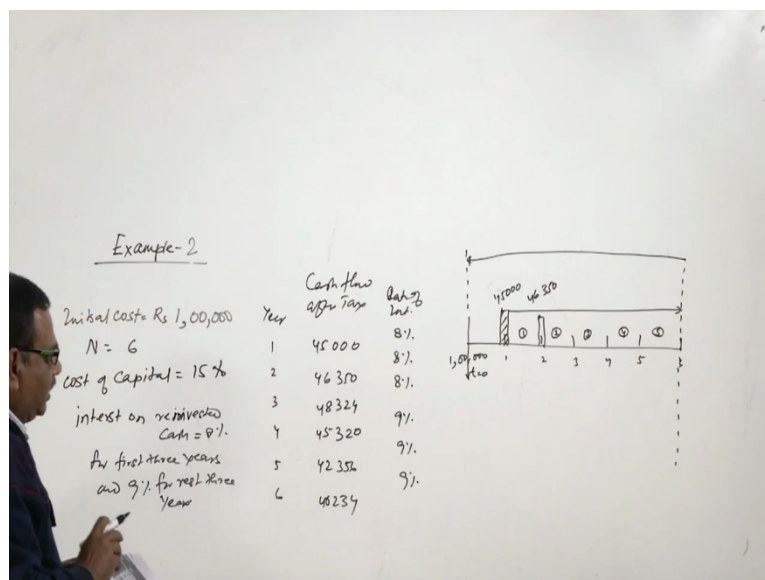 Example-2
Initial cost = Rs 1,00,000
N = 6
cost of Capital = 15%
interst on reinvested
Cash = 8%
for first three years
and 9% for rest three
years
Year Cash flow after Tax Rate of Int.
1 45000 8%
2 46350 8%
3 48324 8%
4 45320 9%
5 42356 9%
6 40234 9%
45000 46350
1 2 3 4 5
1,00,000 1 2 3 4 5